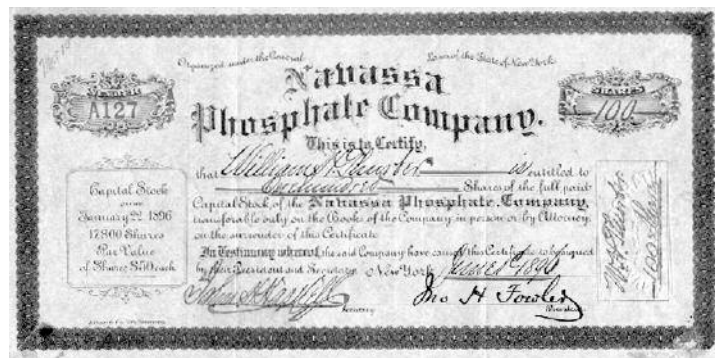 Organized under the General Laws of the State of New York
NUMBER
A127
SHARES
100
Navassa
Phosphate Company.
This is to Certify,
that William H. is entitled to
One hundred Shares of the full paid
Capital Stock of the Navassa Phosphate Company,
transferable only on the Books of the Company in person or by Attorney
on the surrender of this Certificate
In Testimony whereof, the said Company have caused this Certificate to be signed
by their President and Secretary New York June 1 1896
Secretary
Jno H Fowler
President
Capital Stock
January 22 1896
17800 Shares
Par Value
of Shares $50 each